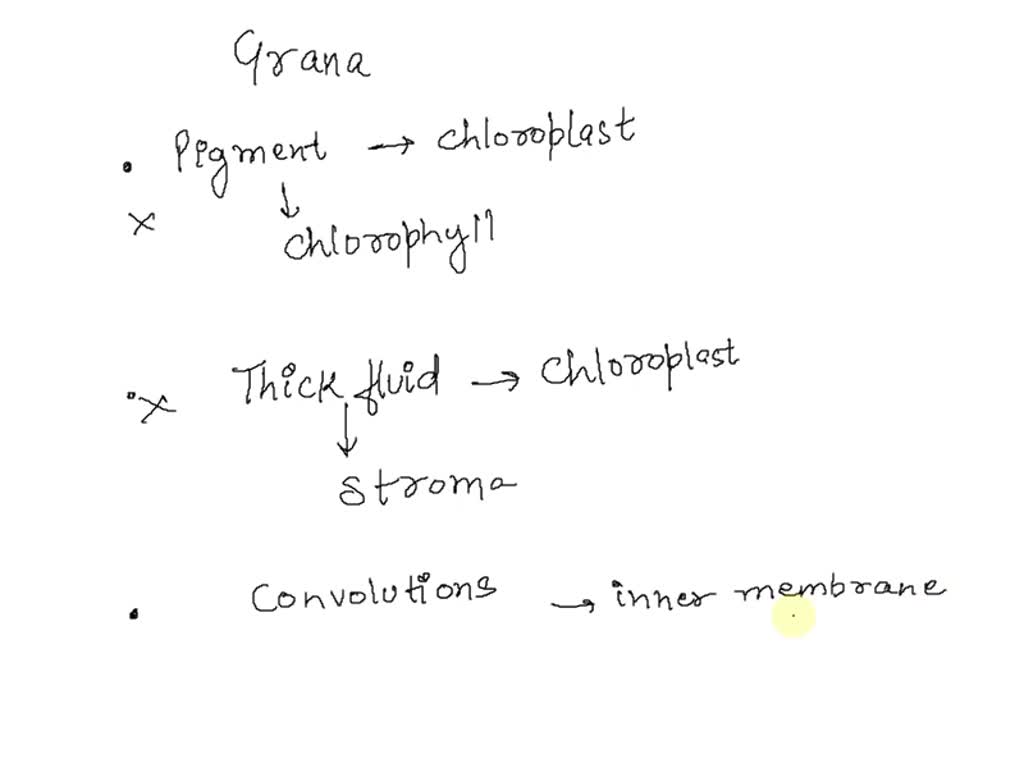 Grana
. Pigment → chloroplast
× ↓
chlorophyll
. × Thick fluid → chloroplast
↓
stroma
. Convolutions → inner membrane